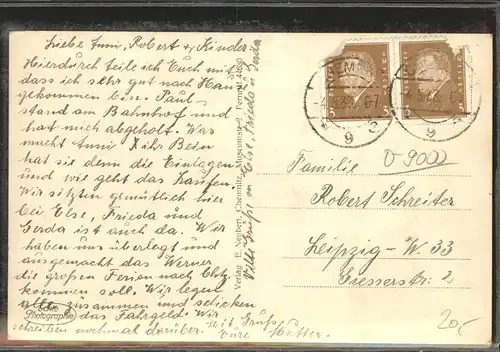 Liebe Anni, Robert & Kinder.
Hierdurch teile ich Euch mit,
dass ich sehr gut nach Haus
gekommen bin. Paul
stand am Bahnhof und
hat mich abgeholt. Was
macht Anni X ihr Bein
hat sie denn die Einlagen
und wie geht das Laufen.
Wir sitzten gemütlich hier
bei Else, Frieda und
Gerda ist auch da. Wir
haben uns überlegt und
ausgemacht das Werner
die großen Ferien nach Chtz.
kommen soll. Wir legen
alle zusammen und schicken
das Fahrgeld. Wir
schreiben nochmal darüber. Mit Gruß
Eure Mutter.
Viele Grüße von Else, und Gerda
Verlag: E. Neubert, Chemnitz, Fernruf
Echte
Photographie
CHEMN
9
9
Familie
Robert Schreiter
Leipzig-W. 33
Giesserstr. 2
O 9000
20,-